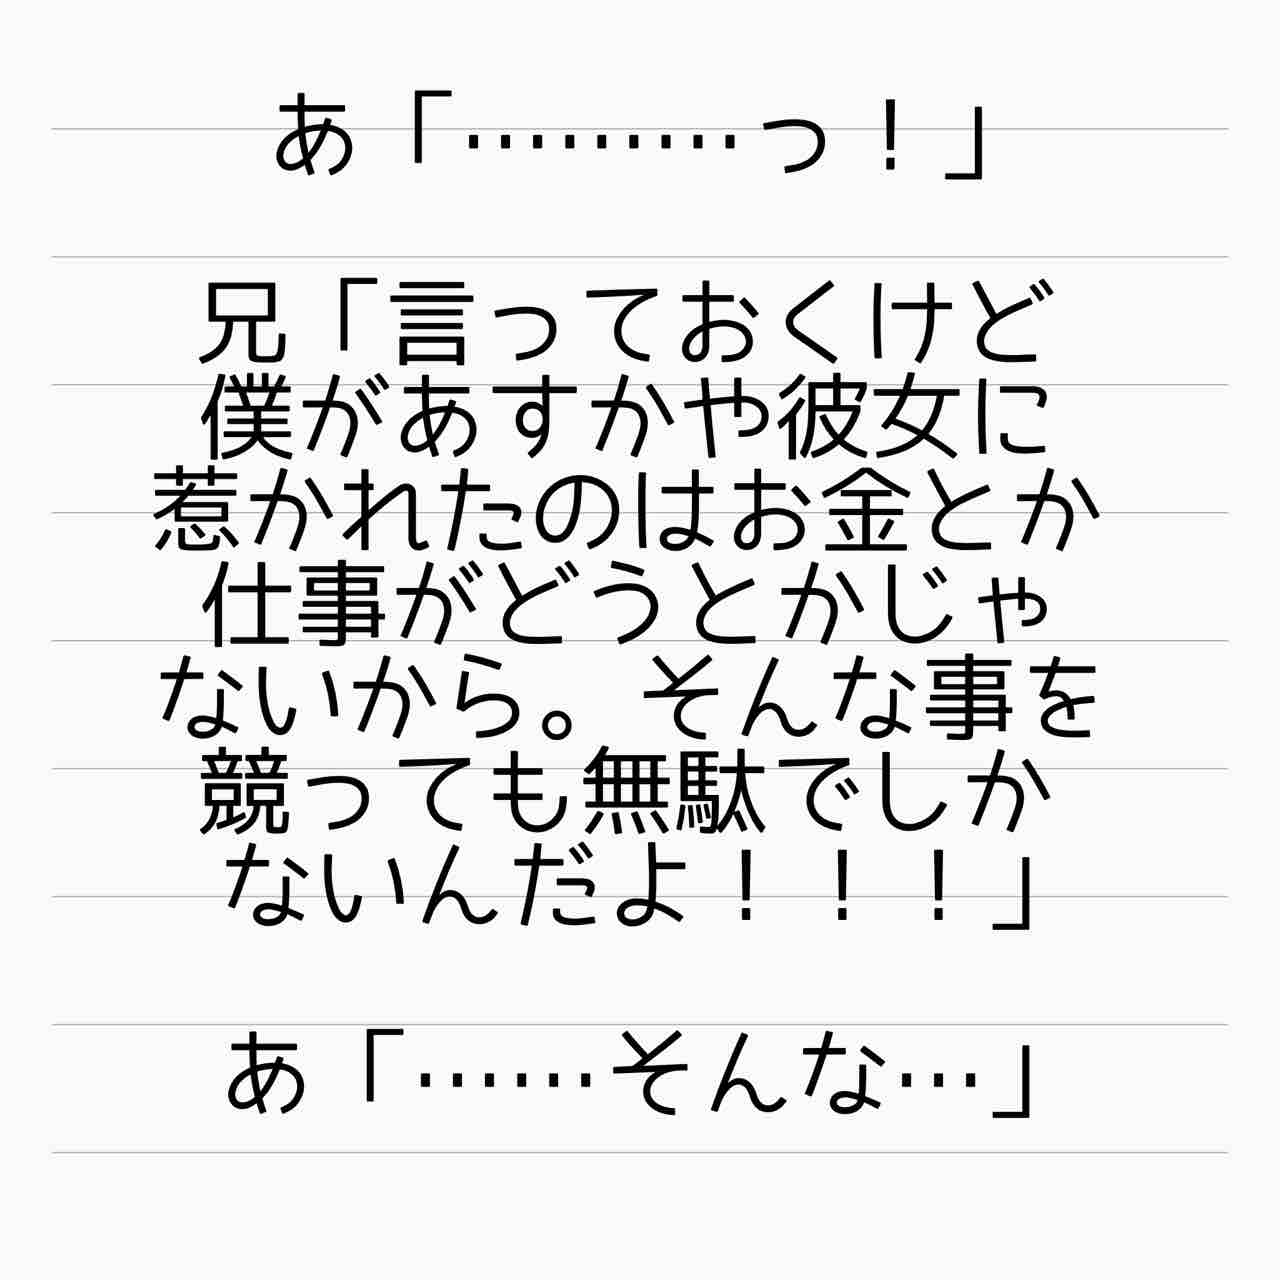 あ「………っ！」
兄「言っておくけど
僕があすかや彼女に
惹かれたのはお金とか
仕事がどうとかじゃ
ないから。そんな事を
競っても無駄でしか
ないんだよ！！！」
あ「……そんな…」